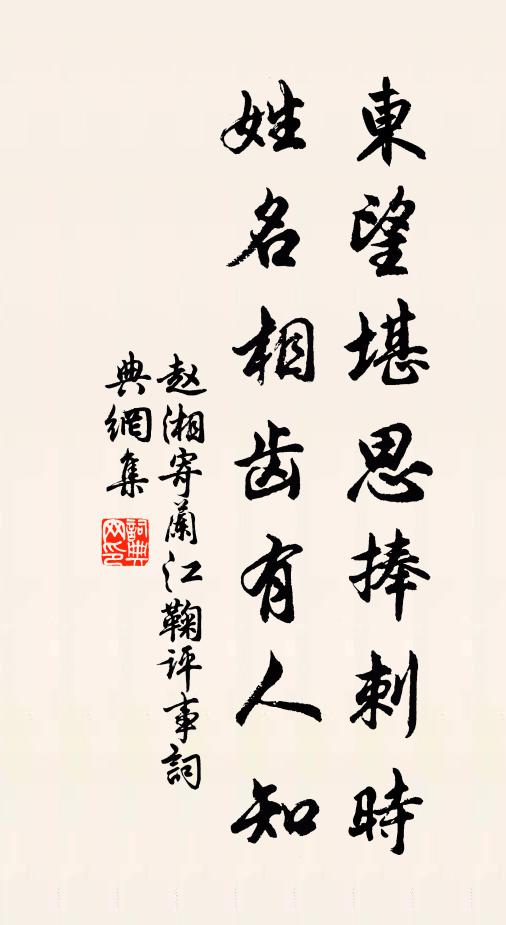 東望堪思捧刺時
姓名相齿有人知
赵湘寄蘭江鞠评事詞
典網集
詞典网印